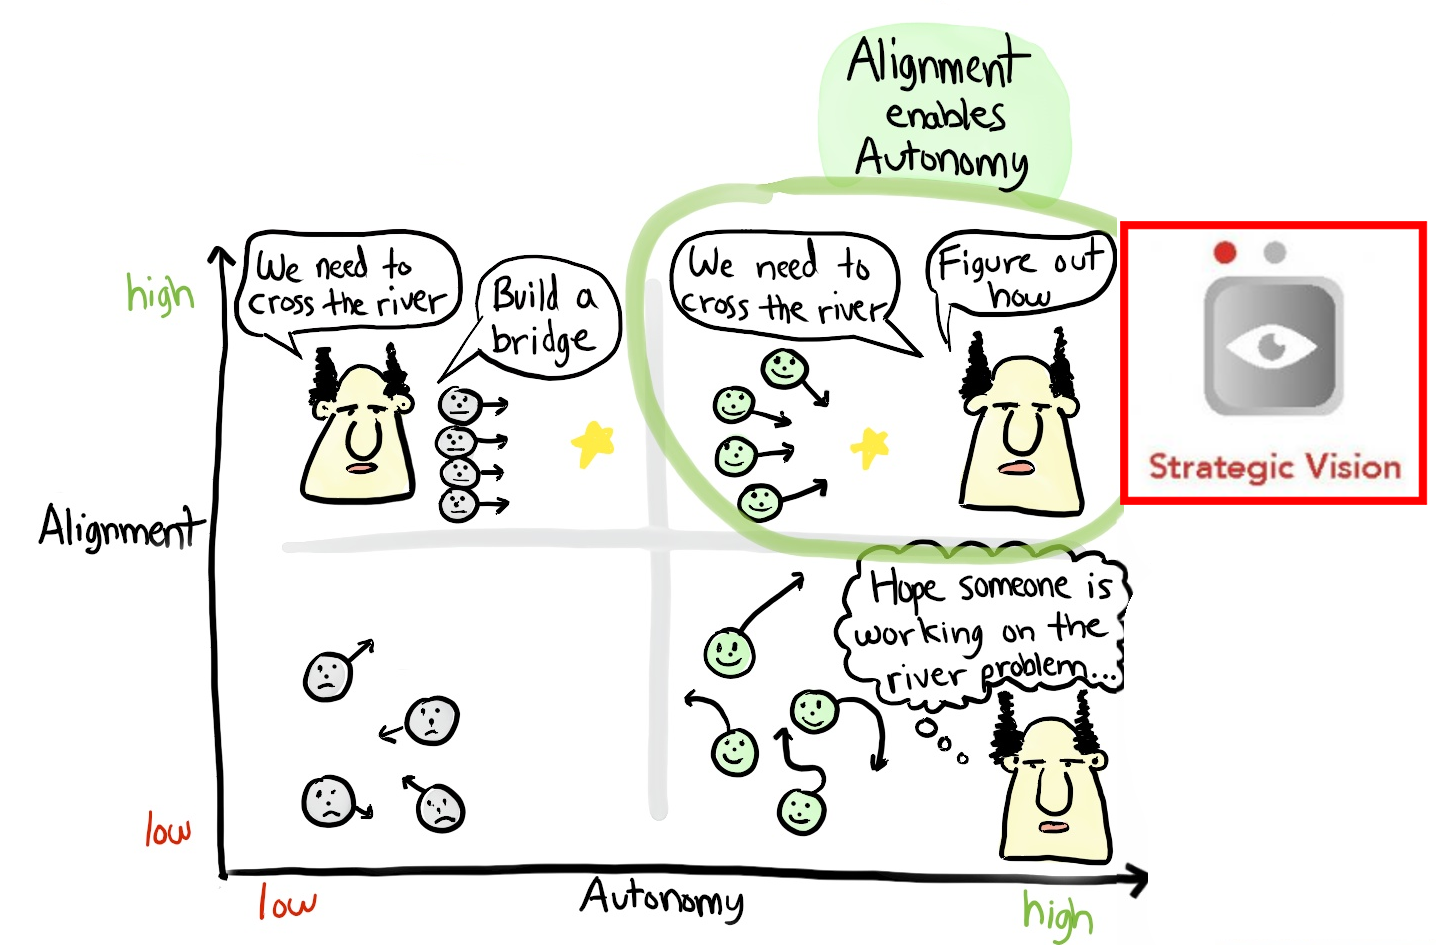 Alignment
enables
Autonomy
high
We need to
cross the river
Build a
bridge
We need to
cross the river
Figure out
how
Strategic Vision
Alignment
Hope someone is
working on the
river problem...
low
low
Autonomy
high